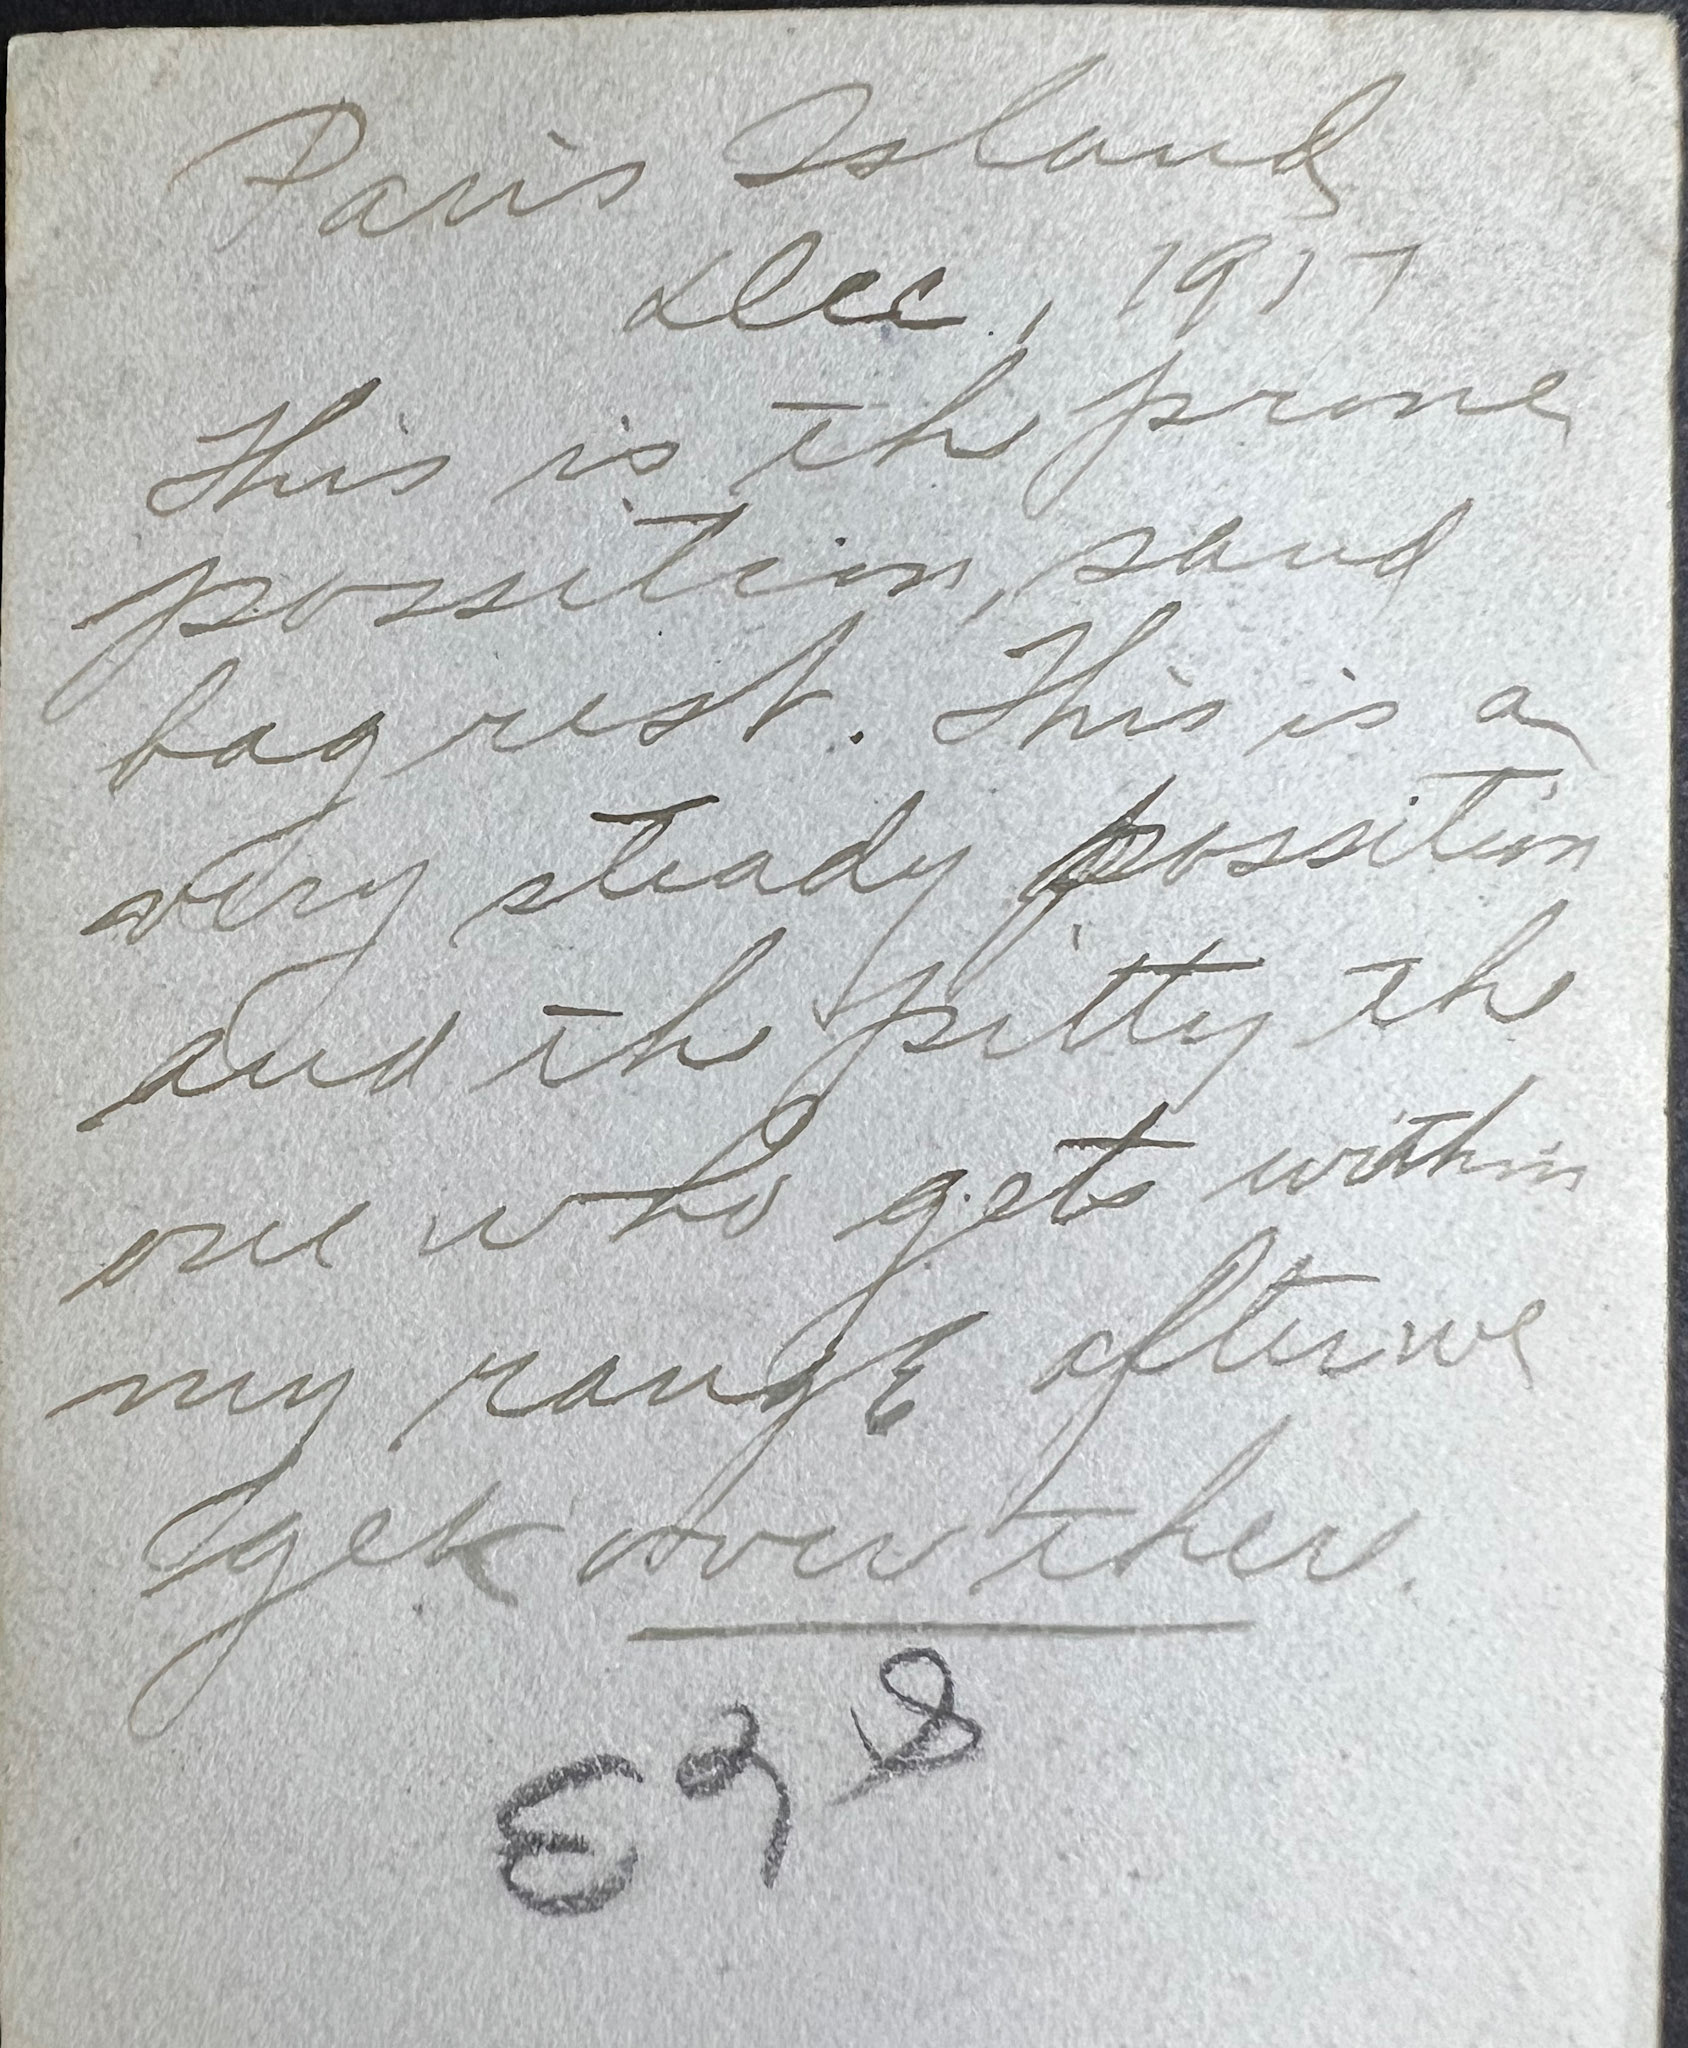 Paris Island
Dec, 1917
This is the prone
possition, sand
bag rest. This is a
very steady possition
and the pitty the
one who gets within
my range after we
get over there.